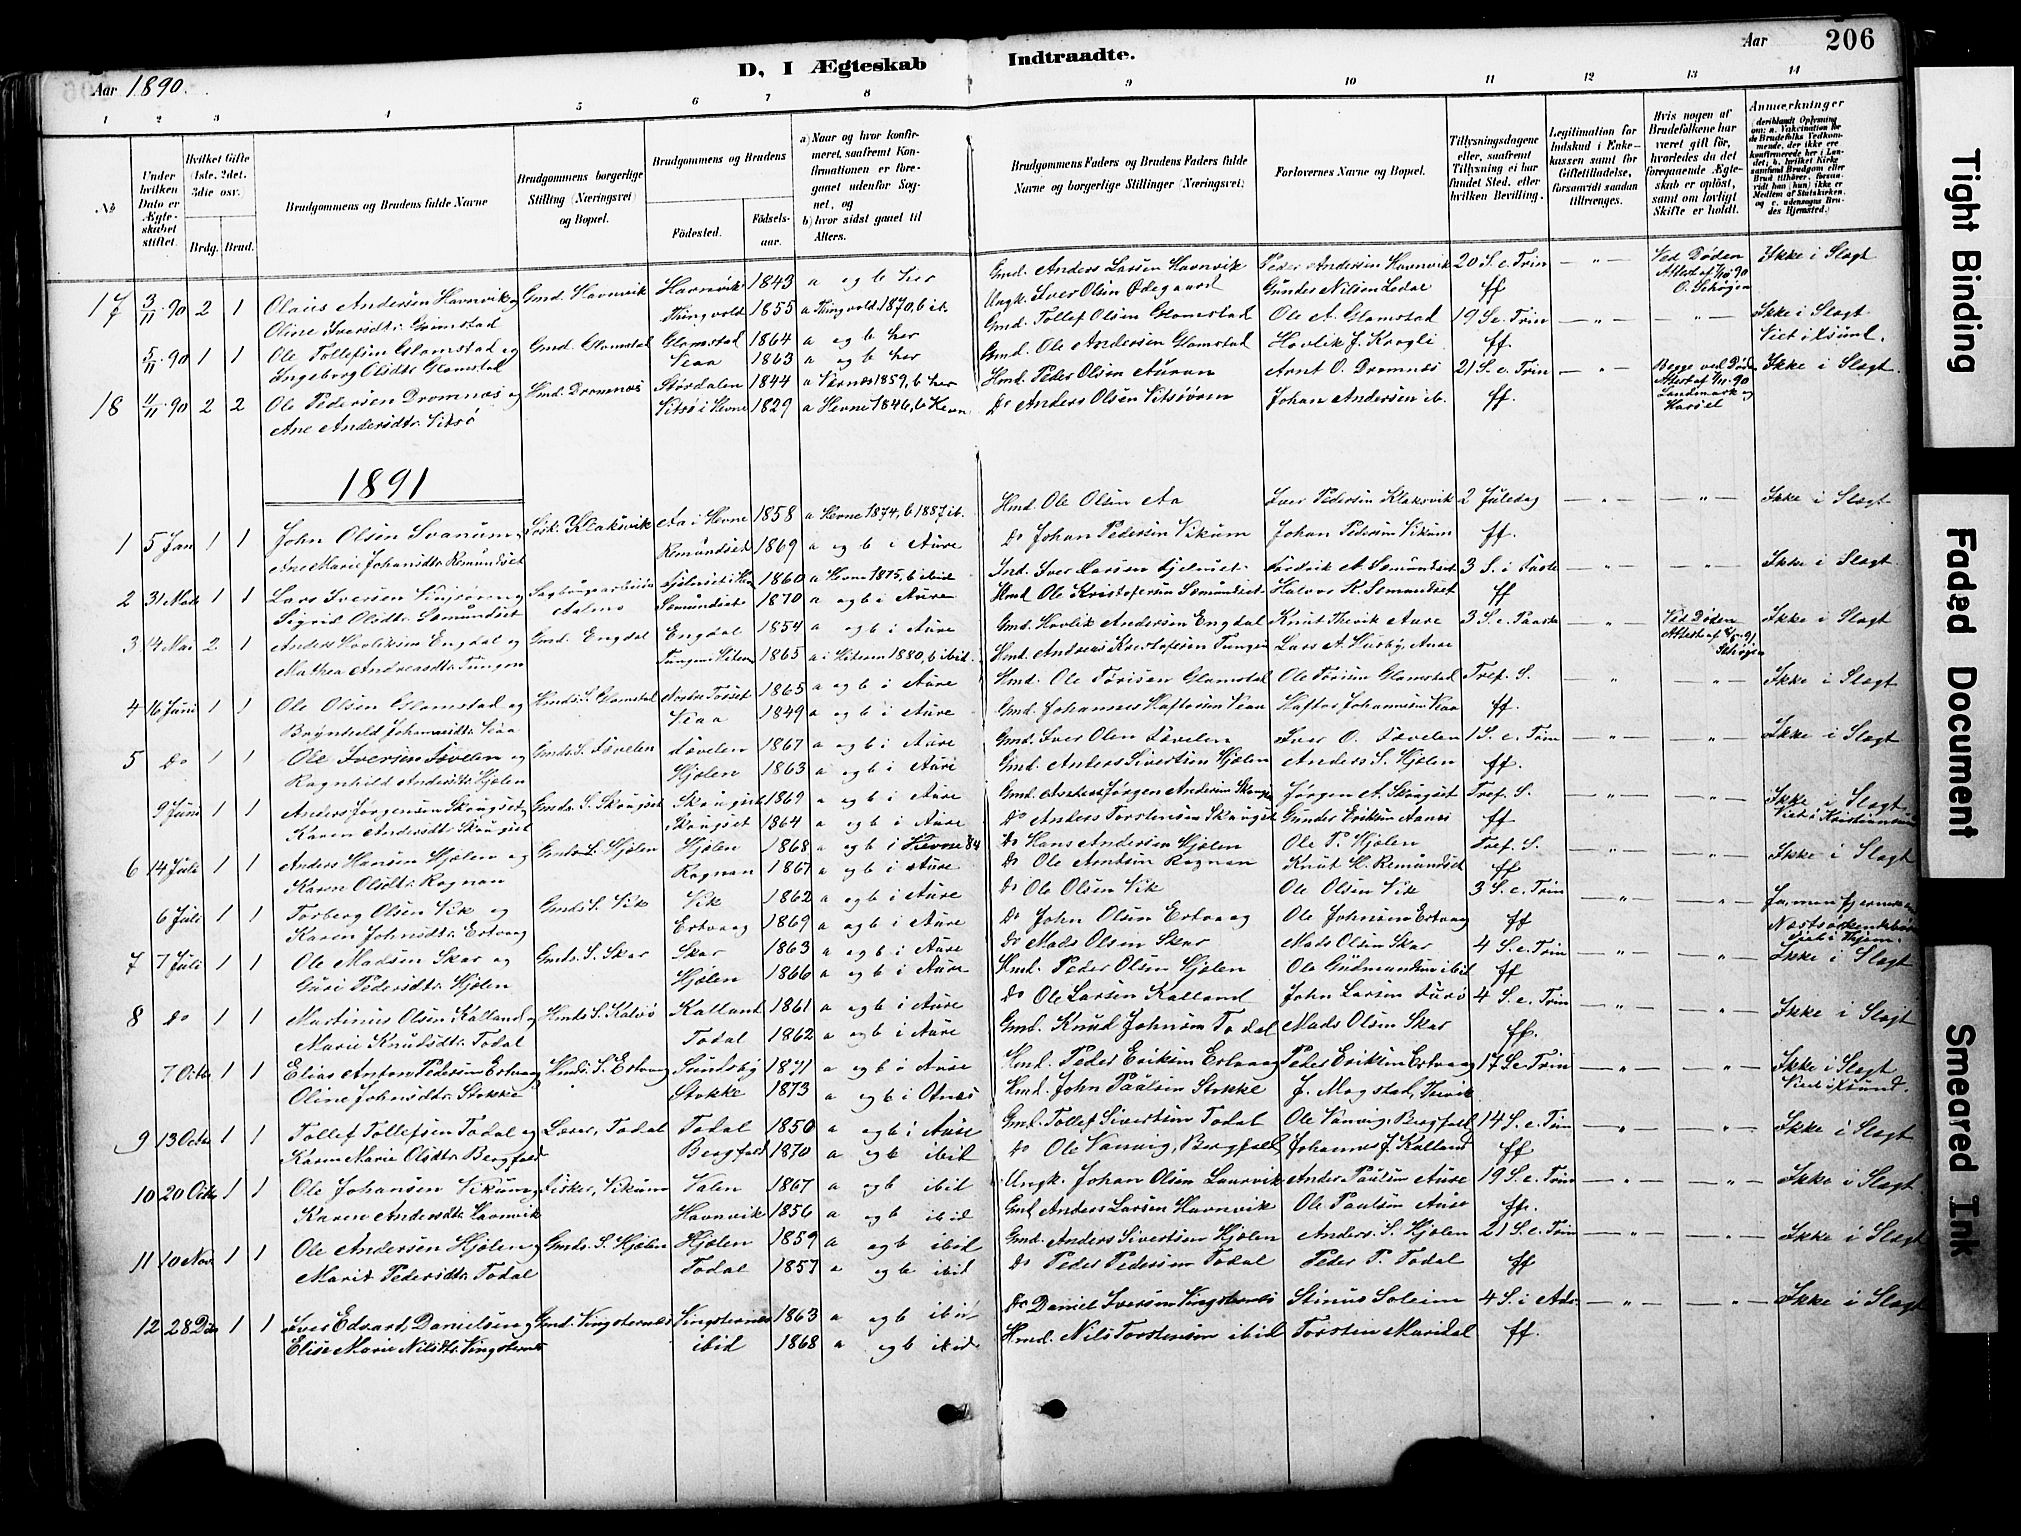 Aar 1890.
D, I Ægteskab Indtraadte.
Aar 206
1 2 3 4 5 6 7 8 9 10 11 12 13 14
№
Under hvilken Dato er Ægteskabet stiftet.
Hvilket Gifte (1ste, 2det, 3die osv.
Brdg. Brud.
Brudgommens og Brudens fulde Navne
Brudgommens borgerlige Stilling (Næringsvei) og Bopæl.
Brudgommens og Brudens
Fødested. Fødselsaar.
a) Naar og hvor konfirmeret, saafremt Konfirmationen er foregaaet udenfor Sognet, og
b) hvor sidst gaaet til Alters.
Brudgommens Faders og Brudens Faders fulde Navne og borgerlige Stillinger (Næringsvei)
Forlovernes Navne og Bopæl.
Tillysningsdagene eller, saafremt Tillysning ei har fundet Sted, efter hvilken Bevilling.
Legitimation for Indskud i Enkekassen samt for Giftetilladelse, forsaavidt saadan tiltrænges.
Hvis nogen af Brudefolkene har været gift før, hvorledes da det foregaaende Ægteskab er opløst, samt om lovligt Skifte er holdt.
Anmærkninger
17 3/11 90 2 1 Olaus Andersen Havnvik og Gmd. Havnvik Havnvik 1843 a og b her Gmd. Anders Larsen Havnvik Peder Andersen Havnvik 20 S. e. Trin — " — Ved Døden Ikke i Slægt
Oline Iversdtr. Grimstad Thingvold 1855 a Thingvold 1870, b ib. Ungk. Iver Olsen Ødegaard Gunder Nilsen Ledal ff
5/11 90 1 1 Ole Tollefsen Glamstad og Gmd. Glamstad Glamstad 1864 a og b her Gmd. Tollef Olsen Glamstad Ole A. Glamstad 19 S. e. Trin — " — — " — Ikke i Slægt
Ingeborg Olsdtr. Glamstad Veaa 1863 a og b her Gmd. Ole Andersen Glamstad ff.
18 11/11 90 2 2 Ole Pedersen Dromnæs og Hmd. Dromnæs Størdalen 1844 a Værnes 1859, b her Hmd. Peder Olsen Auran Arnt O. Dromnæs 21 S. e. Trin — " — Begge ved Død. Ikke i Slægt
Ane Andersdtr. Vitsø Vitsø i Hevne 1829 a Hevne 1846, b Hevn Do Anders Olsen Johan Andersen ib. ff.
1891
1 5 Jan 1 1 John Olsen Svanum Klaksvik Aa i Hevne 1858 a Hevne 1874, b 1887 ib. Hmd. Ole Olsen Aa Iver Pedersen Klaksvik 2 Juledag — " — — " — Ikke i Slægt
Ane Marie Johansdtr. Remundset Remundset 1869 a og b i Aure Do Johan Pedersen Vikum Johan Pedersen Vikum ff.
2 31 Mar 1 1 Lars Iversen 1860 a Hevne 1875, b ibid 3 S. i Faste — " — — " — Ikke i Slægt
Sigrid Olsdtr. Semundset Semundset 1870 a og b i Aure Hmd Ole Kristofersen Semundset Halvor K. Semundset ff
3 14 Mai 2 1 Anders Hovliksen Engdal og Gmd. Engdal Engdal 1854 a og b i Aure Gmd. Hovlik Andersen Engdal Knut Thevik Aure 3 S. e. Paaske — " — Ved Døden Ikke i Slægt
Mathea Andreasdtr. Tungen 1865 a i Hitern 1880, b ibid. Hmd. Andreas Kristofersen Tungen Lars A. Husby, Aure
4 16 Juni 1 1 Ole Olsen Glamstad og Hmds. S. Glamstad 1865 a og b i Aure Hmd. Ole Torisen Glamstad Ole Torisen Glamstad Tref. S. " — " — Ikke i Slægt
Brynhild Johannesdtr. Veaa Veaa 1849 a og b i Aure Gmd. Johannes Haftorsen Veaa Haftor Johannesen Veaa ff.
5 Do 1 1 Ole Iversen Løvelen og Gmds. S. Løvelen Løvelen 1867 a og b i Aure Gmd. Iver Olen Løvelen Iver O. Løvelen 1 S. e. Trin — " — — " — Ikke i Slægt
Ragnhild Andersdtr. Hjælen Hjælen 1863 a og b i Aure Gmd. Anders Sivertsen Hjælen Anders S. Hjælen ff.
9 Juni 1 1 Anders Jørgensen Skougset Gmds. S. Skougset Skougset 1869 a og b i Aure Gmd. Jørgen Andersen Jørgen A. Skougset Tref. S. — " — — " — Ikke i Slægt
Karen Andersdtr. Skougset Skougset 1864 a og b i Aure Do Anders Torstensen Skougset Gunder Eriksen Aanes ff Viet i Kristiansund
6 14 Juli 1 1 Anders Hansen Hjælen og Gmds. S. Hjælen Hjælen 1868 a og b i Hevne 84 Do Hans Andersen Hjælen Ole P. Hjælen Tref. S. — " — — " — Ikke i Slægt
Karen Olsdtr. Rognan Rognan 1867 a og b i Aure Do Ole Arntsen Rognan Knut H. Remundset ff
6 Juli 1 1 Torberg Olsen Vik og Gmds. S. Vik Vik 1862 a og b i Aure Do Ole Olsen Vik Ole Olsen Vik 3 S. e. Trin — " — — " —
Karen Johnsdtr. Ertvaag Ertvaag 1869 a og b i Aure Do John Olsen Ertvaag Ole Johnsen Ertvaag ff
7 7 Juli 1 1 Ole Madsen Skar og Gmds. S. Skar Skar 1863 a og b i Aure Do Mads Olsen Skar Mads Olsen Skar 4 S. e. Trin — " — — " — Ikke i Slægt
Guri Pedersdtr. Hjælen Hjælen 1866 a og b i Aure Hmd. Peder Olsen Hjælen Ole Gudmundsen ibid ff
8 Do 1 1 Martinus Olsen Kalland og Hmds. S. Kalvø Kalland 1861 a og b i Aure Do Ole Larsen Kalland John Larsen Furø 4 S. e. Trin — " — — " — Ikke i Slægt
Marie Knudsdtr. Todal Todal 1862 a og b i Aure Gmd. Knud Johnsen Todal Mads Olsen Skar ff.
7 Octbr 1 1 Elias Anton Pedersen Ertvaag Hmds. S. Ertvaag Sundsby 1871 a og b i Aure Hmd. Peder Eriksen Ertvaag Peder Eriksen Ertvaag 17 S. e. Trin — " — — " — Ikke i Slægt
Oline Johnsdtr. Stokke Stokke 1873 a og b i Hmd. John Paulsen Stokke J. Mogstad, Thevik Viet i Ksund.
9 13 Octbr 1 1 Tollef Tollefsen Todal og Lærer, Todal Todal 1850 a og b i Aure Gmd. Tollef Sivertsen Todal Ole Vanvig, Bergfald 14 S. e. Trin — " — — " — Ikke i Slægt
Karen Marie Olsdtr. Bergfald Bergfald 1870 a og b ibid Do Ole Vanvig, Bergfald Johannes J. Kalland ff
10 20 Octbr 1 1 Ole Johansen Vikum og Fisker, Vikum Valen 1867 a og b ibid Ungk. Johan Olsen Laurvik Anders Paulsen Aure 19 S. e. Trin — " — — " — Ikke i Slægt.
Karen Andersdtr. Havnvik Havnvik 1856 a og b ibid Gmd Anders Larsen Havnvik Ole Paulsen Aure ff.
11 10 Nov. 1 1 Ole Andersen Hjælen og Gmds. S. Hjælen Hjælen 1859 a og b ibid Gmd. Anders Sivertsen Hjælen Anders S. Hjælen 21 S. e. Trin — " — — " — Ikke i Slægt
Marit Pedersdtr. Todal Todal 1857 a og b ibid Do Peder Pedersen Todal Peder P. Todal ff
12 28 Dec 1 1 Iver Edvart Danielsen og Gmd. Vingsternes Vingsternes 1863 a og b ibid Do Daniel Iversen Vingsternes Stinus Soleim 4 S. i Adv. — " — — " — Ikke i Slægt
Elise Marie Nilsdtr. Vingsternes ibid 1868 a og b ibid Hmd. Nils Torstensen ibid Torsten Maridal ff.
Tight Binding
Faded Document
Smeared Ink